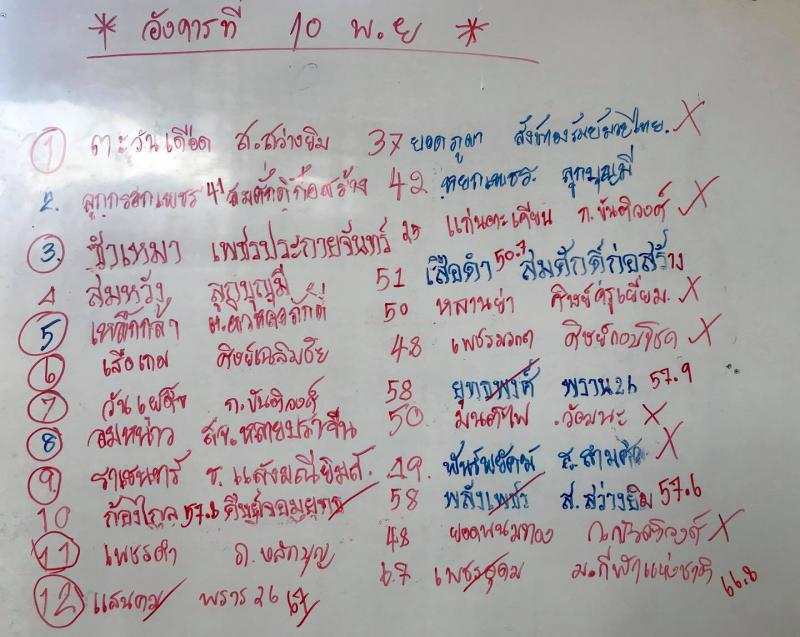 * อังคารที่ 10 พ.ย *
1 ตะวันเดือด ส.สว่างยิม 37 ยอดภูผา X
2. ลูกกรอกเพชร 41 สมศักดิ์ก่อสร้าง 42 หยกเพชร. ลูกบุญมี
3. ซ้าเหมา เพชรประกายจันทร์ 25 แก่นตะเคียน ก.ขันติวงศ์ X
4 สมหวัง ลูกบุญมี 51 เสือดำ 50.7 สมศักดิ์ก่อสร้าง
5 เหล็กกล้า 50 หลานย่า ศิษย์ครูเยี่ยม. X
6 เสือเทพ ศิษย์เฉลิมชัย 48 เพชรมรกต ศิษย์กอบโชค X
7 วันเผด็จ ก.ขันติวงศ์ 58 ยุทธพงศ์ พราน26 57.9
8 ลมหนาว 50 มนต์ไฟ .วัฒนะ X
9. ราเชนทร์ ช. แสงมณียิมส์. 49. พันธ์พยัคฆ์ X
10 ก้องไกล 57.6 ศิษย์จอมยุทธ 58 พลังเพชร ส.สว่างยิม 57.6
11 เพชรดำ 48 ยอดพนมทอง ก.ขันติวงศ์ X
12 แสนคม พราน26 67 67 เพชรอุดม ม.กีฬาแห่งชาติ 66.8